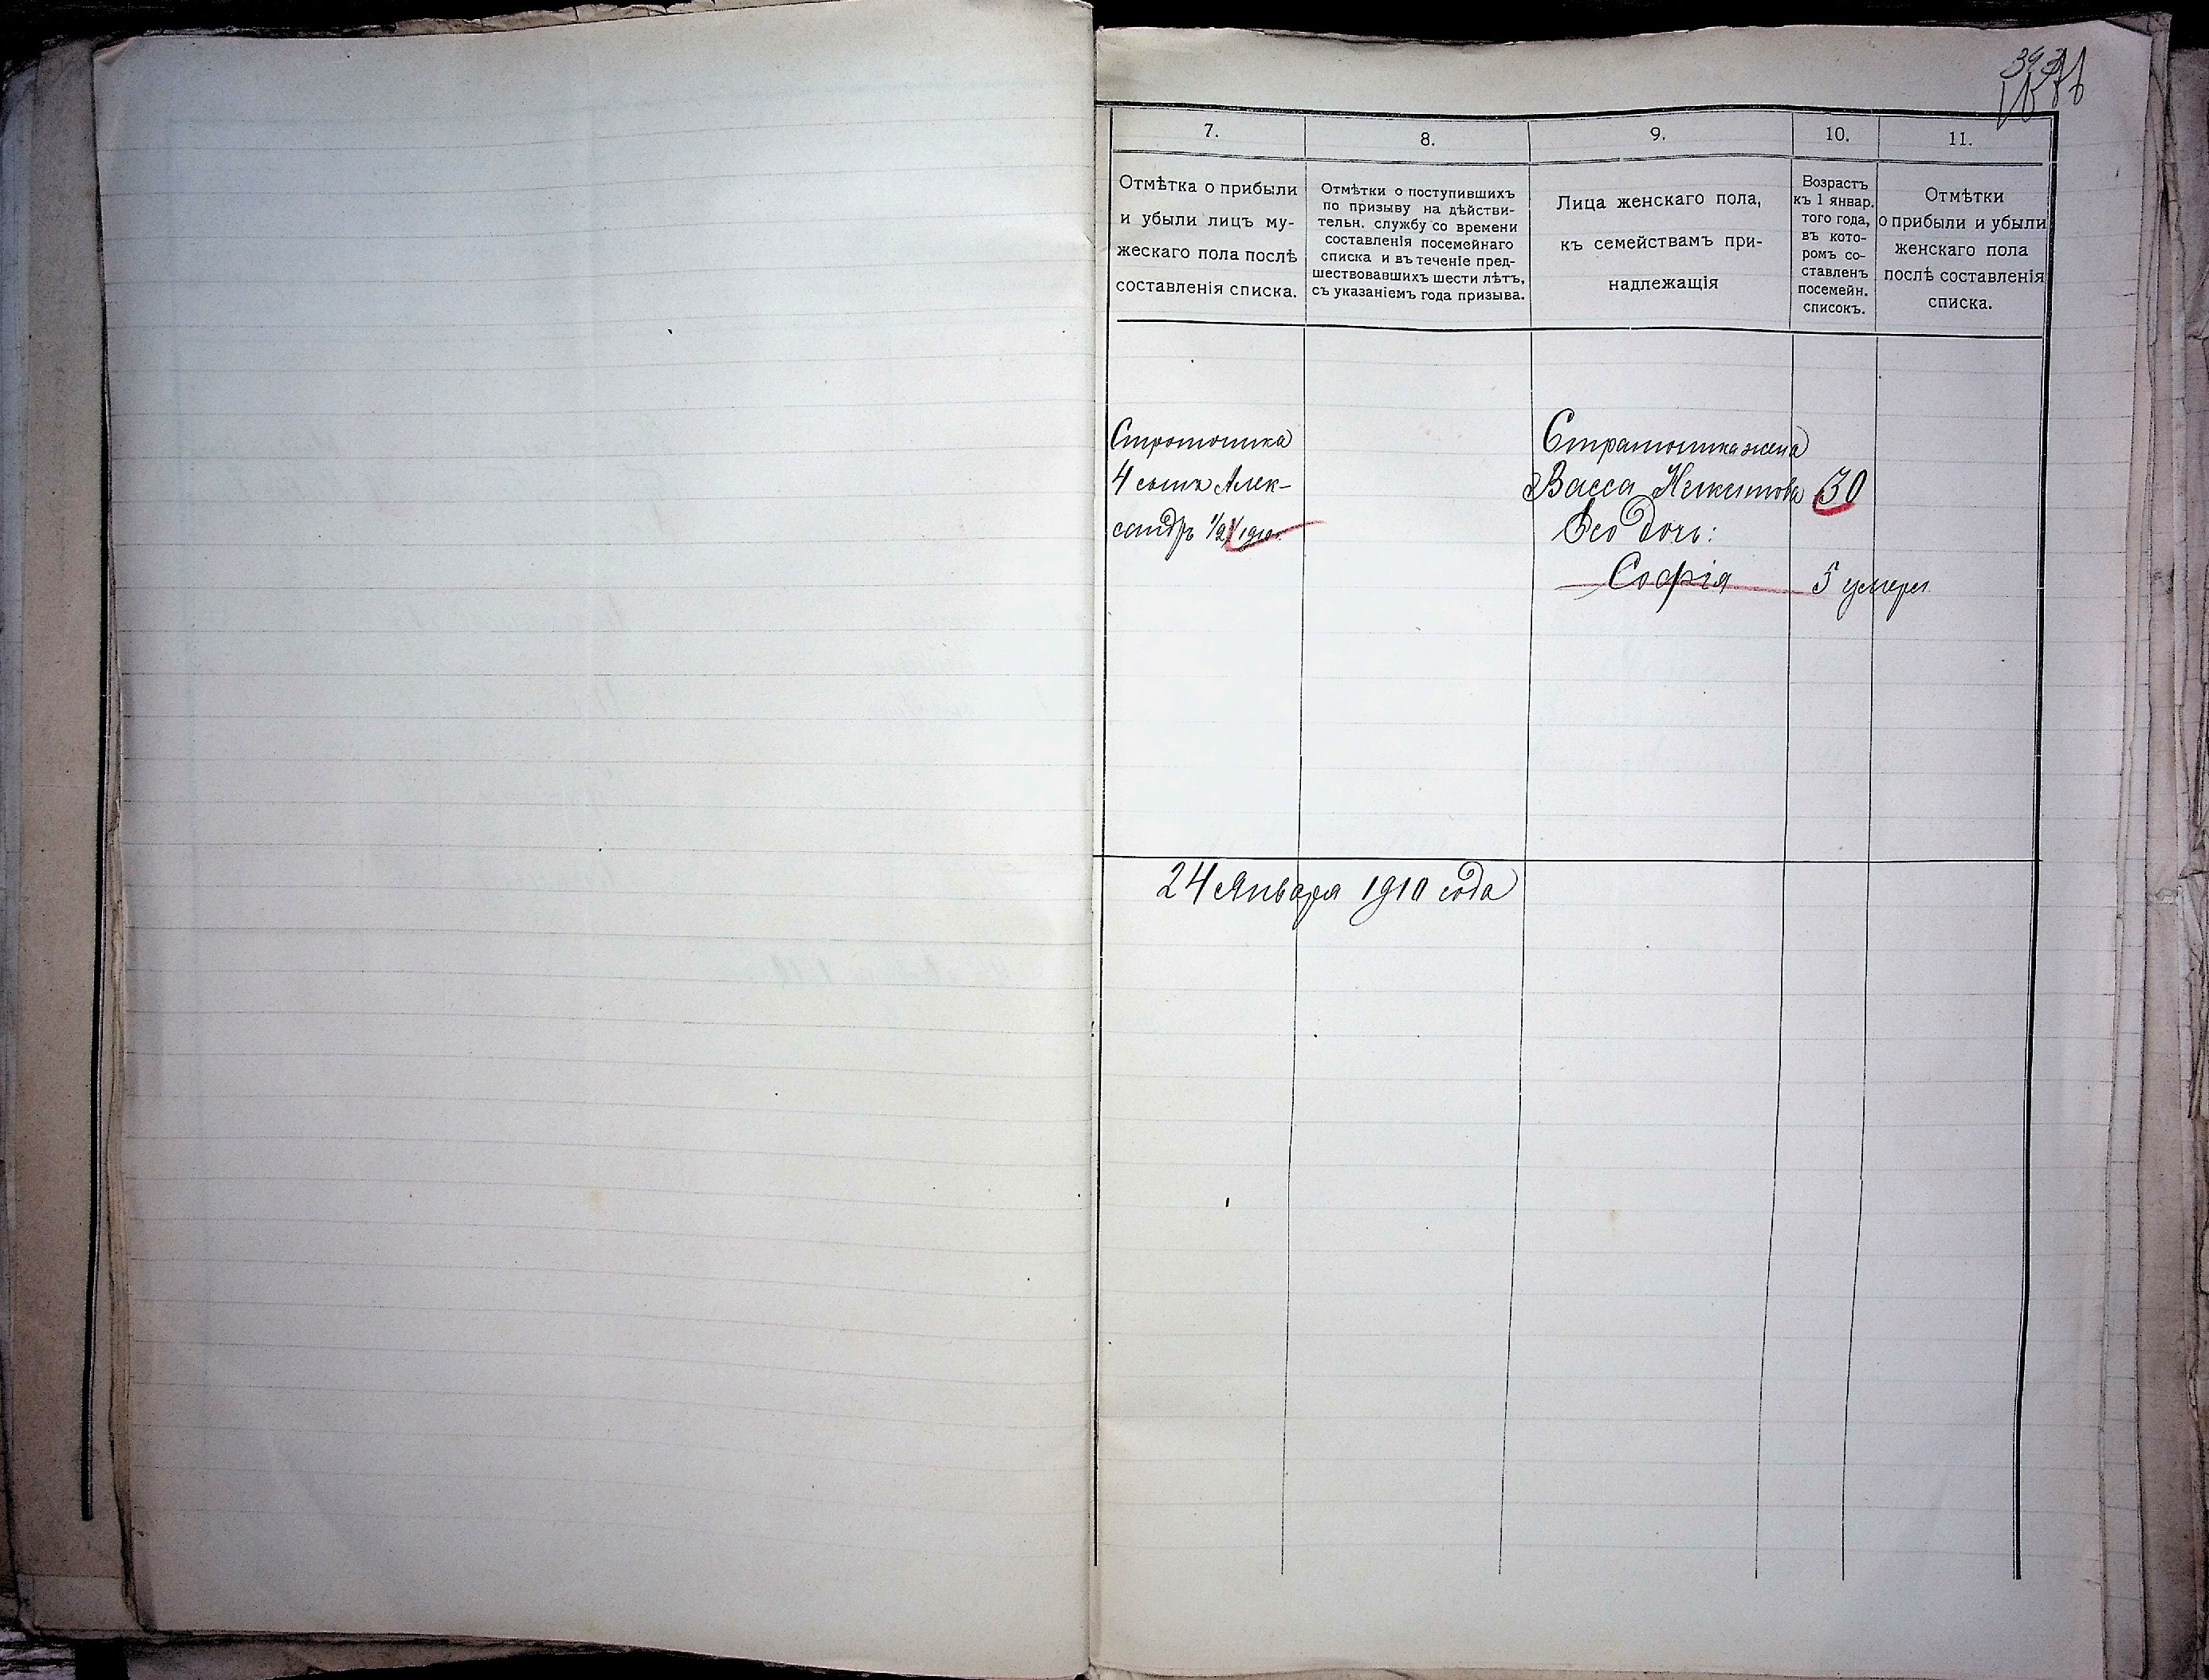 393
7.
8.
9.
10.
11.
Отмѣтка о прибыли
и убыли лицъ му-
жескаго пола послѣ
составленія списка.
Отмѣтки о поступившихъ
по призыву на дѣйстви-
тельн. службу со времени
составленія посемейнаго
списка и въ теченіе пред-
шествовавшихъ шести лѣтъ,
съ указаніемъ года призыва.
Лица женскаго пола,
къ семействамъ при-
надлежащія
Возрастъ
къ 1 январ.
того года,
въ кото-
ромъ со-
ставленъ
посемейн.
списокъ.
Отмѣтки
о прибыли и убыли
женскаго пола
послѣ составленія
списка.
4 сынъ Алек-
сандръ 1910.
Стратоника жена
Васса Никитова 30
Его дочь:
Софія 5 умерла
24 Января 1910 года